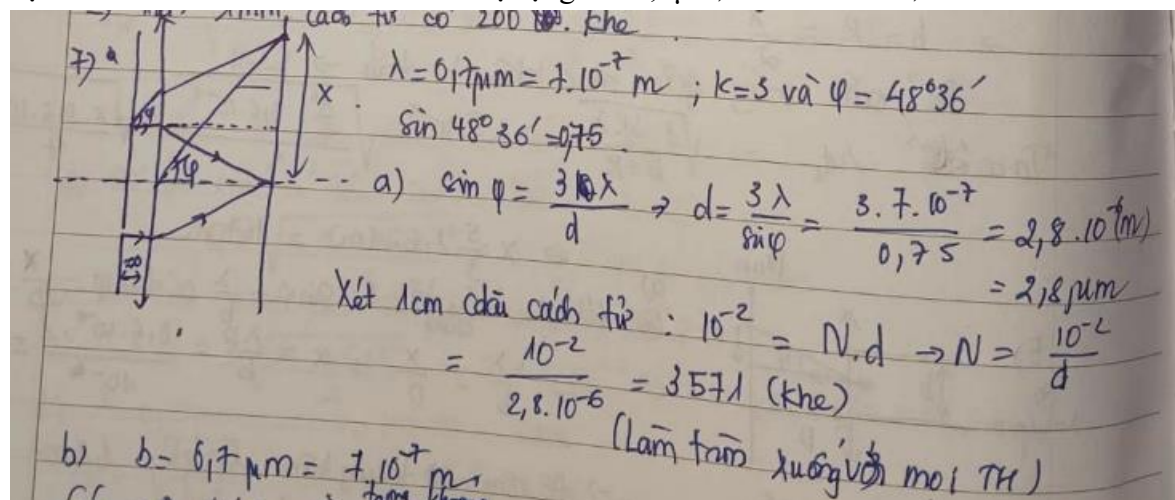 cách tử có 200 khe.
7)
x
λ = 0,7μm = 7.10⁻⁷ m ; k=3 và φ = 48°36'
sin 48°36' = 0,75
φ
a) sin φ = 3λ/d → d = 3λ/sinφ = 3.7.10⁻⁷/0,75 = 2,8.10⁻⁶ (m)
= 2,8 μm
Xét 1cm cdài cách tử : 10⁻² = N.d → N = 10⁻²/d
= 10⁻²/2,8.10⁻⁶ = 3571 (khe)
(Làm tròn xuống với mọi TH)
b) b = 0,7 μm = 7.10⁻⁷ m